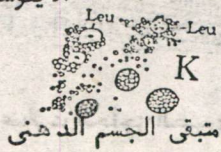 Leu
Leu
K
متبقى الجسم الدهنى